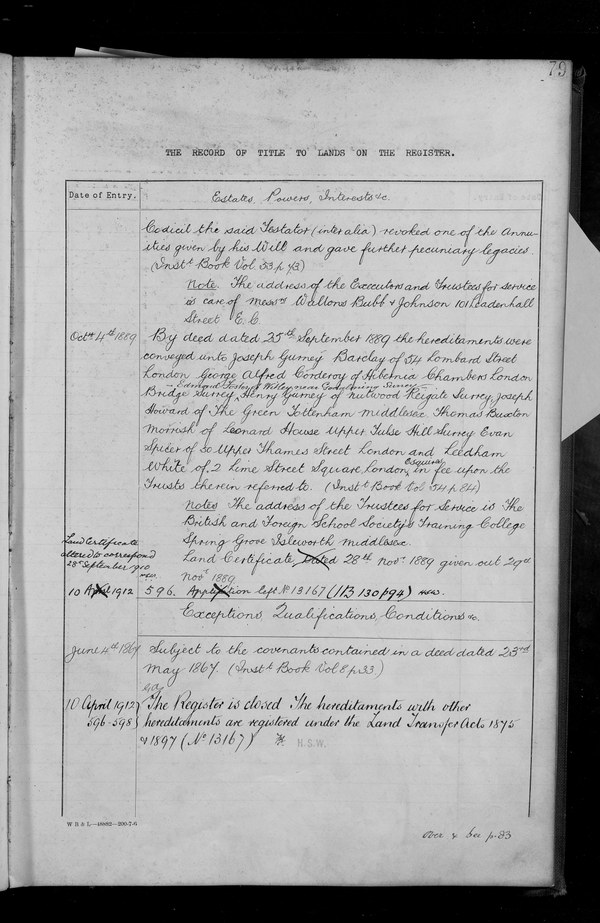 79
THE RECORD OF TITLE TO LANDS ON THE REGISTER.
Date of Entry.
Estates, Powers, Interests &c.
Codicil the said Testator (inter alia) revoked one of the Annu-
ities given by his Will and gave further pecuniary legacies.
(Inst^t Book Vol 53 p 43)
Note. The address of the Executors and Trustees for service
is care of Mess^rs Waltons Bubb & Johnson 101 Leadenhall
Street E.C.
Oct^r 4^th 1889
By deed dated 25^th September 1889 the hereditaments were
conveyed unto Joseph Gurney Barclay of 54 Lombard Street
London George Alfred Corderoy of Hibernia Chambers London
Edmund of Witley near Godalming Surrey
Bridge Surrey, Henry Gurney of Nutwood Reigate Surrey, Joseph
Howard of The Green Tottenham Middlesex Thomas Buxton
Morrish of Leonard House Upper Tulse Hill Surrey Evan
Spicer of 50 Upper Thames Street London and Leedham
White of 2 Lime Street Square London Esquires in fee upon the
Trusts therein referred to. (Inst^t Book Vol 54 p 84)
Notes The address of the Trustees for Service is The
British and Foreign School Society's Training College
Spring Grove Isleworth Middlesex.
Land Certificate
altered to correspond
28 September 1910
Land Certificate, Dated 28^th Nov^r 1889 given out 29^th
Nov^r 1889
10 April 1912
596. Application left N^o 13167 (113 130 p 94)
Exceptions, Qualifications, Conditions &c.
June 4^th 1867
Subject to the covenants contained in a deed dated 23^rd
May 1867. (Inst^t Book Vol 8 p 33)
10 April 1912
596-598
The Register is closed The hereditaments with other
hereditaments are registered under the Land Transfer Acts 1875
& 1897 (N^o 13167) H.S.W.
W B & L—46962—200.7.6
Over & see p. 83